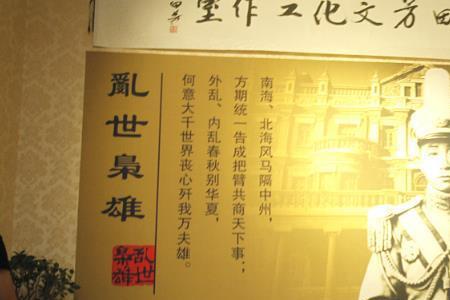 芳文化工作室
南海、北海风马隔中州，
方期统一告成把臂共商天下事；
外乱、内乱春秋别华夏，
何意大千世界丧心歼我万夫雄。
亂世梟雄
乱世梟雄